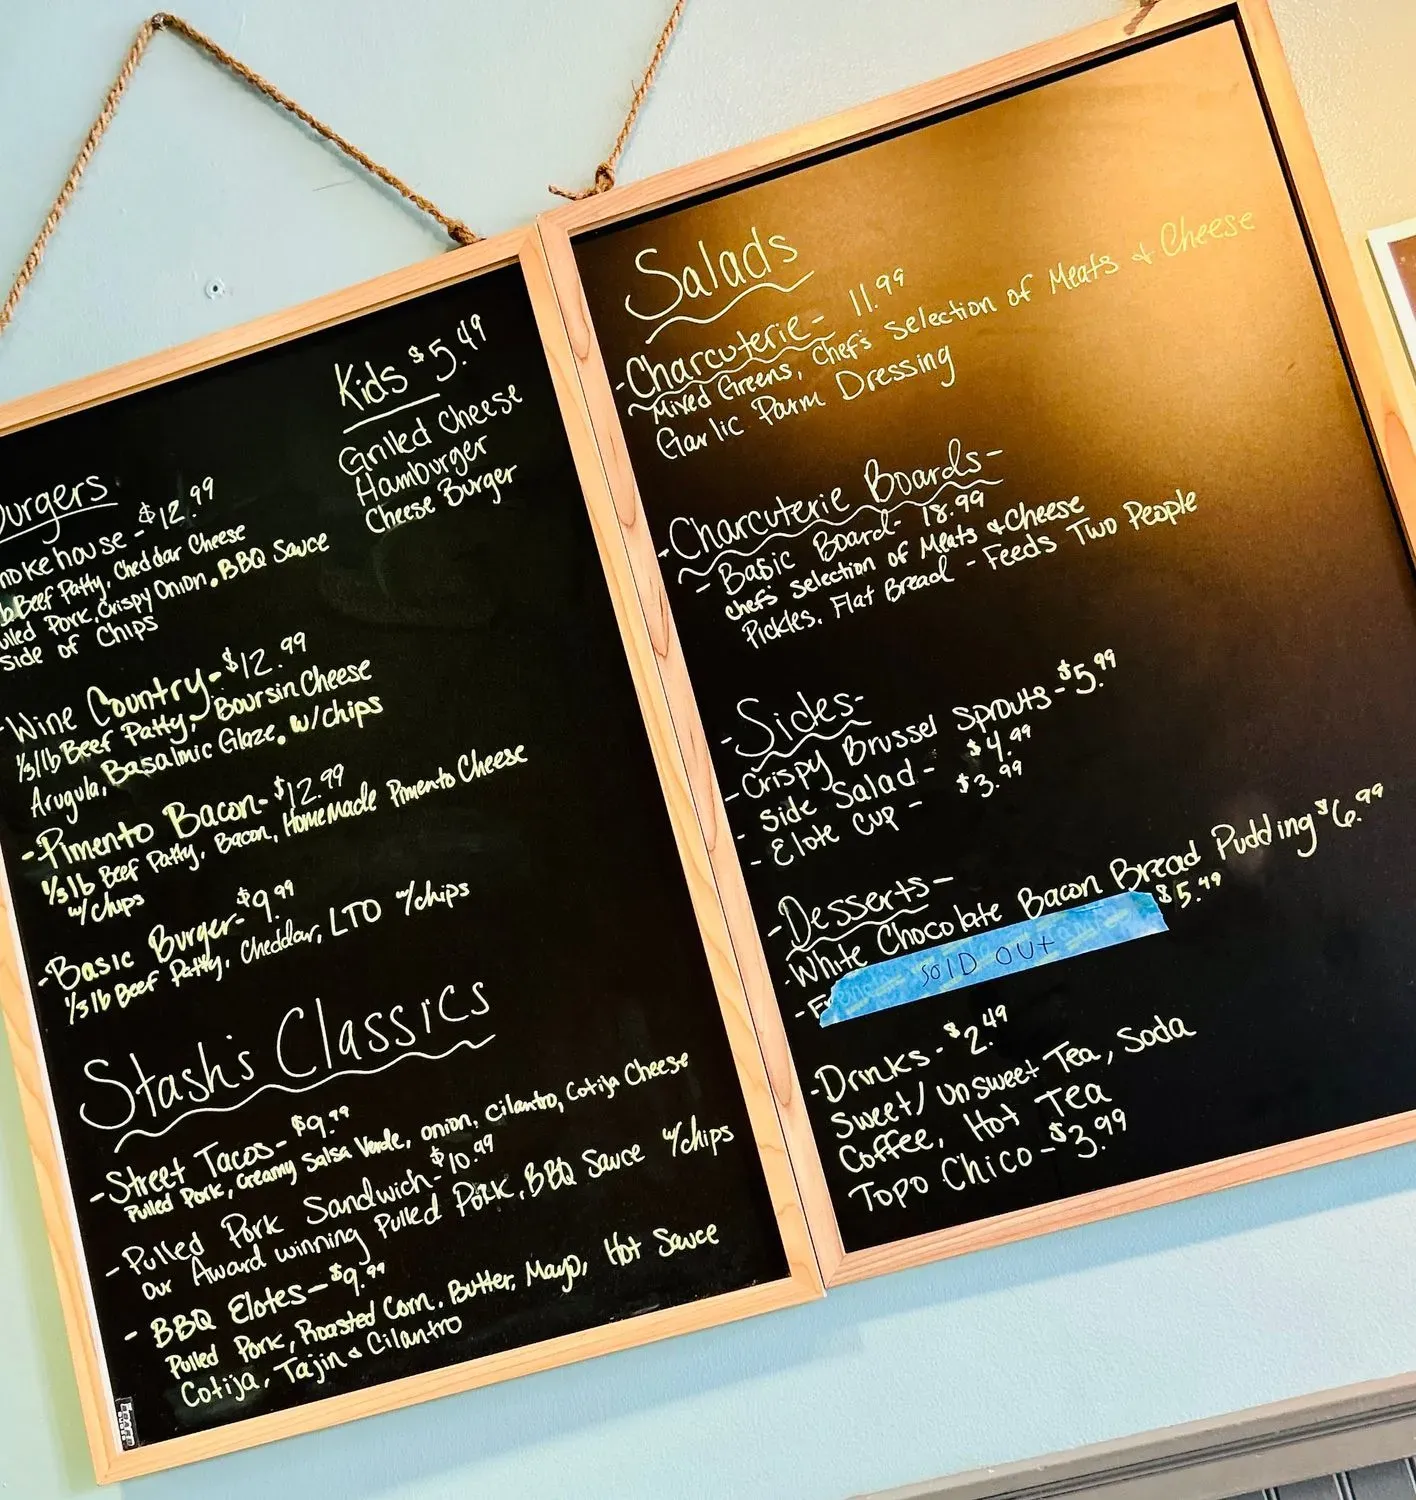 Kids $5.49
Grilled Cheese
Hamburger
Cheese Burger
Burgers
mokehouse - $12.99
lb Beef Patty, Cheddar Cheese
ulled Pork, Crispy Onion, BBQ Sauce
Side of Chips
- Wine Country - $12.99
1/3 lb Beef Patty, Boursin Cheese
Arugula, Basalmic Glaze. w/chips
- Pimento Bacon - $12.99
1/3 lb Beef Patty, Bacon, Homemade Pimento Cheese
w/chips
- Basic Burger - $9.99
1/3 lb Beef Patty, Cheddar, LTO w/chips
Stash's Classics
- Street Tacos - $9.99
Pulled Pork, Creamy Salsa Verde, onion, cilantro, Cotija Cheese
- Pulled Pork Sandwich - $10.99
Our Award winning Pulled Pork, BBQ Sauce w/chips
- BBQ Elotes - $9.99
Pulled Pork, Roasted Corn, Butter, Mayo, Hot Sauce
Cotija, Tajin & Cilantro
Salads
- Charcuterie - 11.99
Mixed Greens, Chef's Selection of Meats & Cheese
Garlic Parm Dressing
- Charcuterie Boards -
- Basic Board - 18.99
Chef's Selection of Meats & Cheese
Pickles, Flat Bread - Feeds Two People
- Sides -
- Crispy Brussel Sprouts - $5.99
- Side Salad - $4.99
- Elote Cup - $3.99
- Desserts -
- White Chocolate Bacon Bread Pudding $6.99
$5.49
SOLD OUT
- Drinks - $2.49
Sweet/Unsweet Tea, Soda
Coffee, Hot Tea
Topo Chico - $3.99